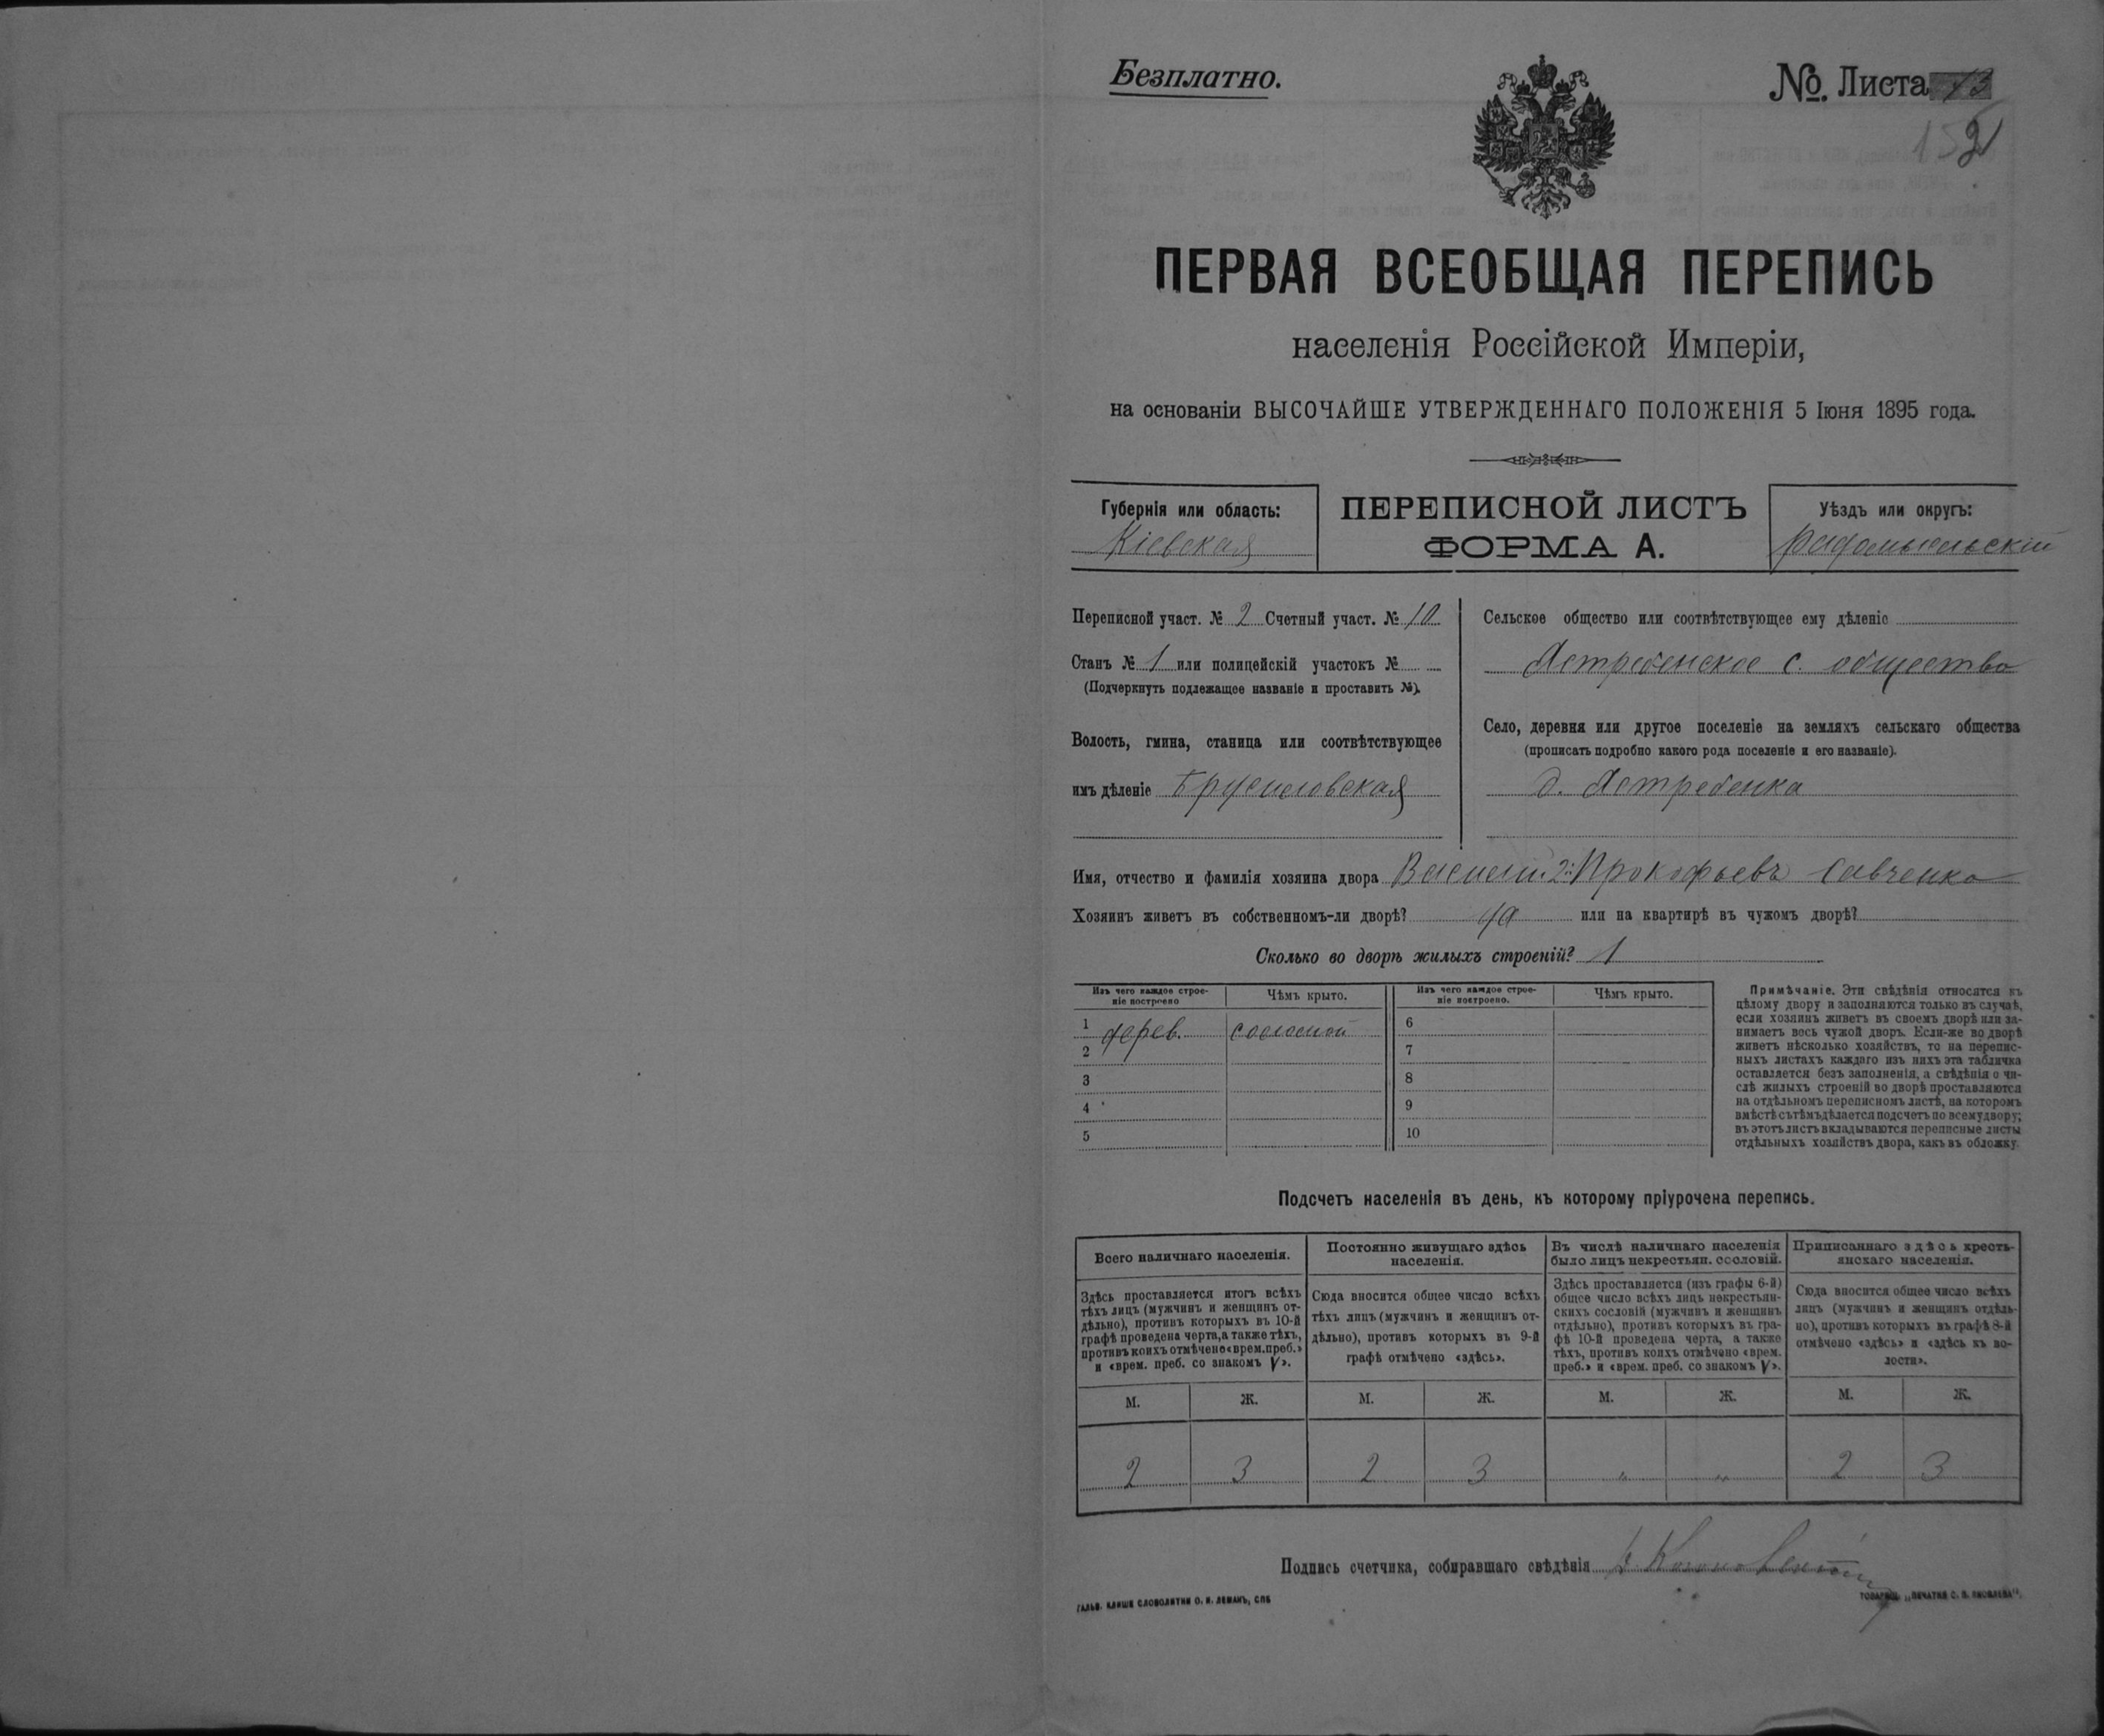 Безплатно.
№ Листа 13
152
ПЕРВАЯ ВСЕОБЩАЯ ПЕРЕПИСЬ
населенія Россійской Имперіи,
на основаніи ВЫСОЧАЙШЕ УТВЕРЖДЕННАГО ПОЛОЖЕНІЯ 5 Іюня 1895 года.
Губернія или область:
Кіевская
ПЕРЕПИСНОЙ ЛИСТЪ
ФОРМА А.
Уѣздъ или округъ:
Радомысльскій
Переписной участ. № 2 Счетный участ. № 10
Станъ № 1 или полицейскій участокъ №
(Подчеркнуть подлежащее названіе и проставить №).
Волость, гмина, станица или соотвѣтствующее
имъ дѣленіе Брусиловская
Сельское общество или соотвѣтствующее ему дѣленіе
Ястребенское с. общество
Село, деревня или другое поселеніе на земляхъ сельскаго общества
(прописать подробно какого рода поселеніе и его названіе).
д. Ястребенка
Имя, отчество и фамилія хозяина двора Василій 2й Прокофьевъ Савченко
Хозяинъ живетъ въ собственномъ-ли дворѣ? да или на квартирѣ въ чужомъ дворѣ?
Сколько во дворѣ жилыхъ строеній? 1
Изъ чего каждое строе-
ніе построено
Чѣмъ крыто.
Изъ чего каждое строе-
ніе построено.
Чѣмъ крыто.
1 дерев. соломой
2
3
4
5
6
7
8
9
10
Примѣчаніе. Эти свѣдѣнія относятся къ
цѣлому двору и заполняются только въ случаѣ,
если хозяинъ живетъ въ своемъ дворѣ или за-
нимаетъ весь чужой дворъ. Если-же во дворѣ
живетъ нѣсколько хозяйствъ, то на перепис-
ныхъ листахъ каждаго изъ нихъ эта табличка
оставляется безъ заполненія, а свѣдѣнія о чи-
слѣ жилыхъ строеній во дворѣ проставляются
на отдѣльномъ переписномъ листѣ, на которомъ
вмѣстѣ съ тѣмъ дѣлается подсчетъ по всему двору;
въ этотъ листъ вкладываются переписные листы
отдѣльныхъ хозяйствъ двора, какъ въ обложку.
Подсчетъ населенія въ день, къ которому пріурочена перепись.
Всего наличнаго населенія.
Здѣсь проставляется итогъ всѣхъ
тѣхъ лицъ (мужчинъ и женщинъ от-
дѣльно), противъ которыхъ въ 10-й
графѣ проведена черта, а также тѣхъ,
противъ коихъ отмѣчено «врем. преб.»
и «врем. преб. со знакомъ V».
Постоянно живущаго здѣсь
населенія.
Сюда вносится общее число всѣхъ
тѣхъ лицъ (мужчинъ и женщинъ от-
дѣльно), противъ которыхъ въ 9-й
графѣ отмѣчено «здѣсь».
Въ числѣ наличнаго населенія
было лицъ некрестьян. сословій.
Здѣсь проставляется (изъ графы 6-й)
общее число всѣхъ лицъ некрестьян-
скихъ сословій (мужчинъ и женщинъ
отдѣльно), противъ которыхъ въ гра-
фѣ 10-й проведена черта, а также
тѣхъ, противъ коихъ отмѣчено «врем.
преб.» и «врем. преб. со знакомъ V».
Приписаннаго здѣсь кресть-
янскаго населенія.
Сюда вносится общее число всѣхъ
лицъ (мужчинъ и женщинъ отдѣль-
но), противъ которыхъ въ графѣ 8-й
отмѣчено «здѣсь» и «здѣсь къ во-
лости».
М. Ж. М. Ж. М. Ж. М. Ж.
2 3 2 3 „ „ 2 3
Подпись счетчика, собиравшаго свѣдѣнія
ГАЛЬВ. КЛИШЕ СЛОВОЛИТНИ О. И. ЛЕМАНЪ, СПБ
ТОВАРИЩ. „ПЕЧАТНЯ С. П. ЯКОВЛЕВА".